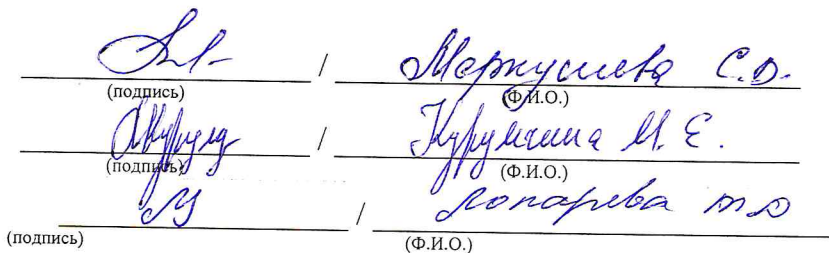 / Меркушева С.О.
(подпись) (Ф.И.О.)
/ Курумчина М.Е.
(подпись) (Ф.И.О.)
/ Лопарева т о
(подпись) (Ф.И.О.)